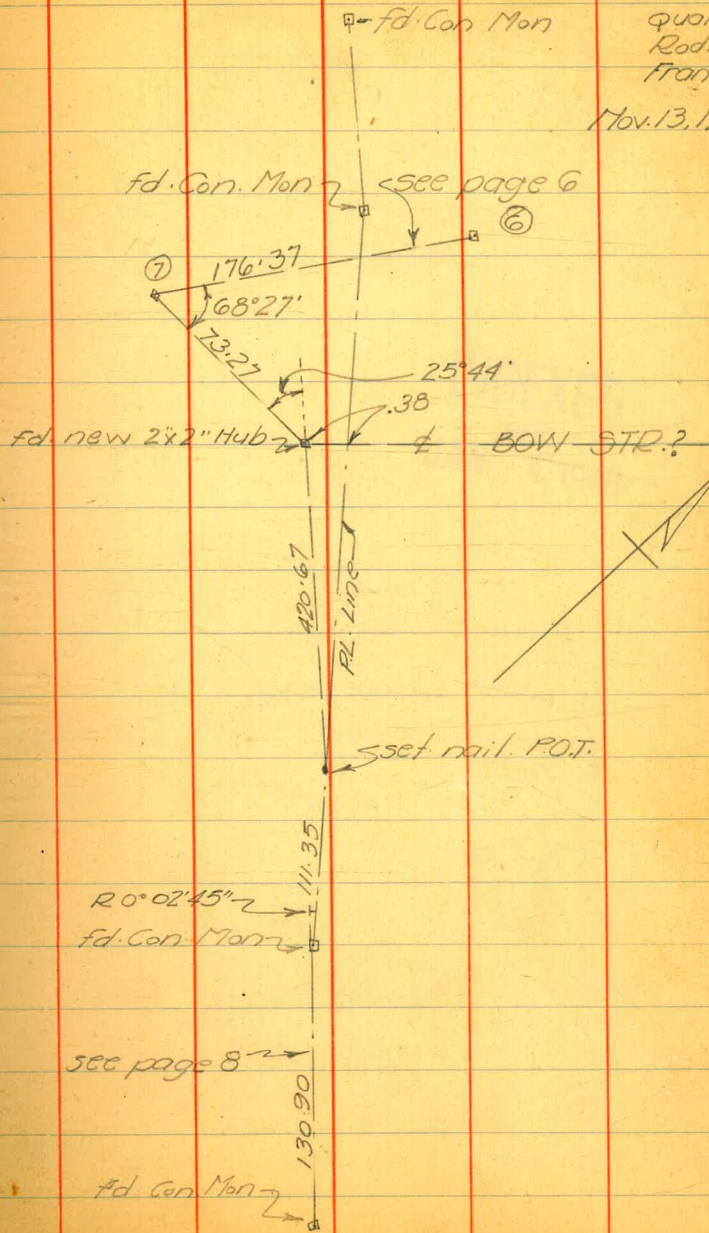 fd. Con Mon
Rod.
Nov. 13, 1
fd. Con. Mon
see page 6
6
7
176.37
68°27'
73.27
25°44'
.38
fd. new 2"x2" Hub
℄ BOW STR.?
420.67
P.L. Line
set nail P.O.T.
111.35
R 0°02'45"
fd. Con Mon
see page 8
130.90
fd Con Mon